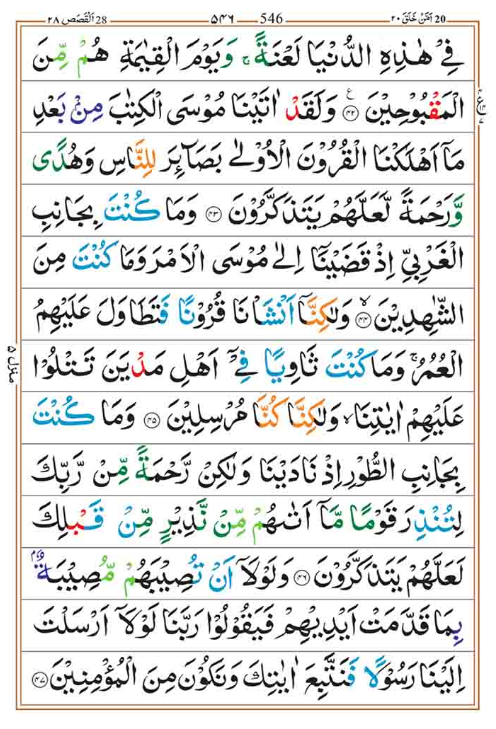 20 اَمَّنْ خَلَقَ ٢٠ — 546 — ٥٤٦ — 28 اَلْقَصَص ٢٨
فِیْ هٰذِهِ الدُّنْیَا لَعْنَةً ۚ وَیَوْمَ الْقِیٰمَةِ هُمْ مِّنَ
الْمَقْبُوْحِیْنَ ﴿٤٢﴾ وَلَقَدْ اٰتَیْنَا مُوْسَی الْكِتٰبَ مِنْۢ بَعْدِ
مَاۤ اَهْلَكْنَا الْقُرُوْنَ الْاُوْلٰی بَصَآئِرَ لِلنَّاسِ وَهُدًی
وَّرَحْمَةً لَّعَلَّهُمْ یَتَذَكَّرُوْنَ ﴿٤٣﴾ وَمَا كُنْتَ بِجَانِبِ
الْغَرْبِیِّ اِذْ قَضَیْنَاۤ اِلٰی مُوْسَی الْاَمْرَ وَمَا كُنْتَ مِنَ
الشّٰهِدِیْنَ ﴿٤٤﴾ۙ وَلٰكِنَّاۤ اَنْشَاْنَا قُرُوْنًا فَتَطَاوَلَ عَلَیْهِمُ
الْعُمُرُ ۚ وَمَا كُنْتَ ثَاوِیًا فِیْۤ اَهْلِ مَدْیَنَ تَتْلُوْا
عَلَیْهِمْ اٰیٰتِنَا ۙ وَلٰكِنَّا كُنَّا مُرْسِلِیْنَ ﴿٤٥﴾ وَمَا كُنْتَ
بِجَانِبِ الطُّوْرِ اِذْ نَادَیْنَا وَلٰكِنْ رَّحْمَةً مِّنْ رَّبِّكَ
لِتُنْذِرَ قَوْمًا مَّاۤ اَتٰىهُمْ مِّنْ نَّذِیْرٍ مِّنْ قَبْلِكَ
لَعَلَّهُمْ یَتَذَكَّرُوْنَ ﴿٤٦﴾ وَلَوْلَاۤ اَنْ تُصِیْبَهُمْ مُّصِیْبَةٌۢ
بِمَا قَدَّمَتْ اَیْدِیْهِمْ فَیَقُوْلُوْا رَبَّنَا لَوْلَاۤ اَرْسَلْتَ
اِلَیْنَا رَسُوْلًا فَنَتَّبِعَ اٰیٰتِكَ وَنَكُوْنَ مِنَ الْمُؤْمِنِیْنَ ﴿٤٧﴾
منزل ٥